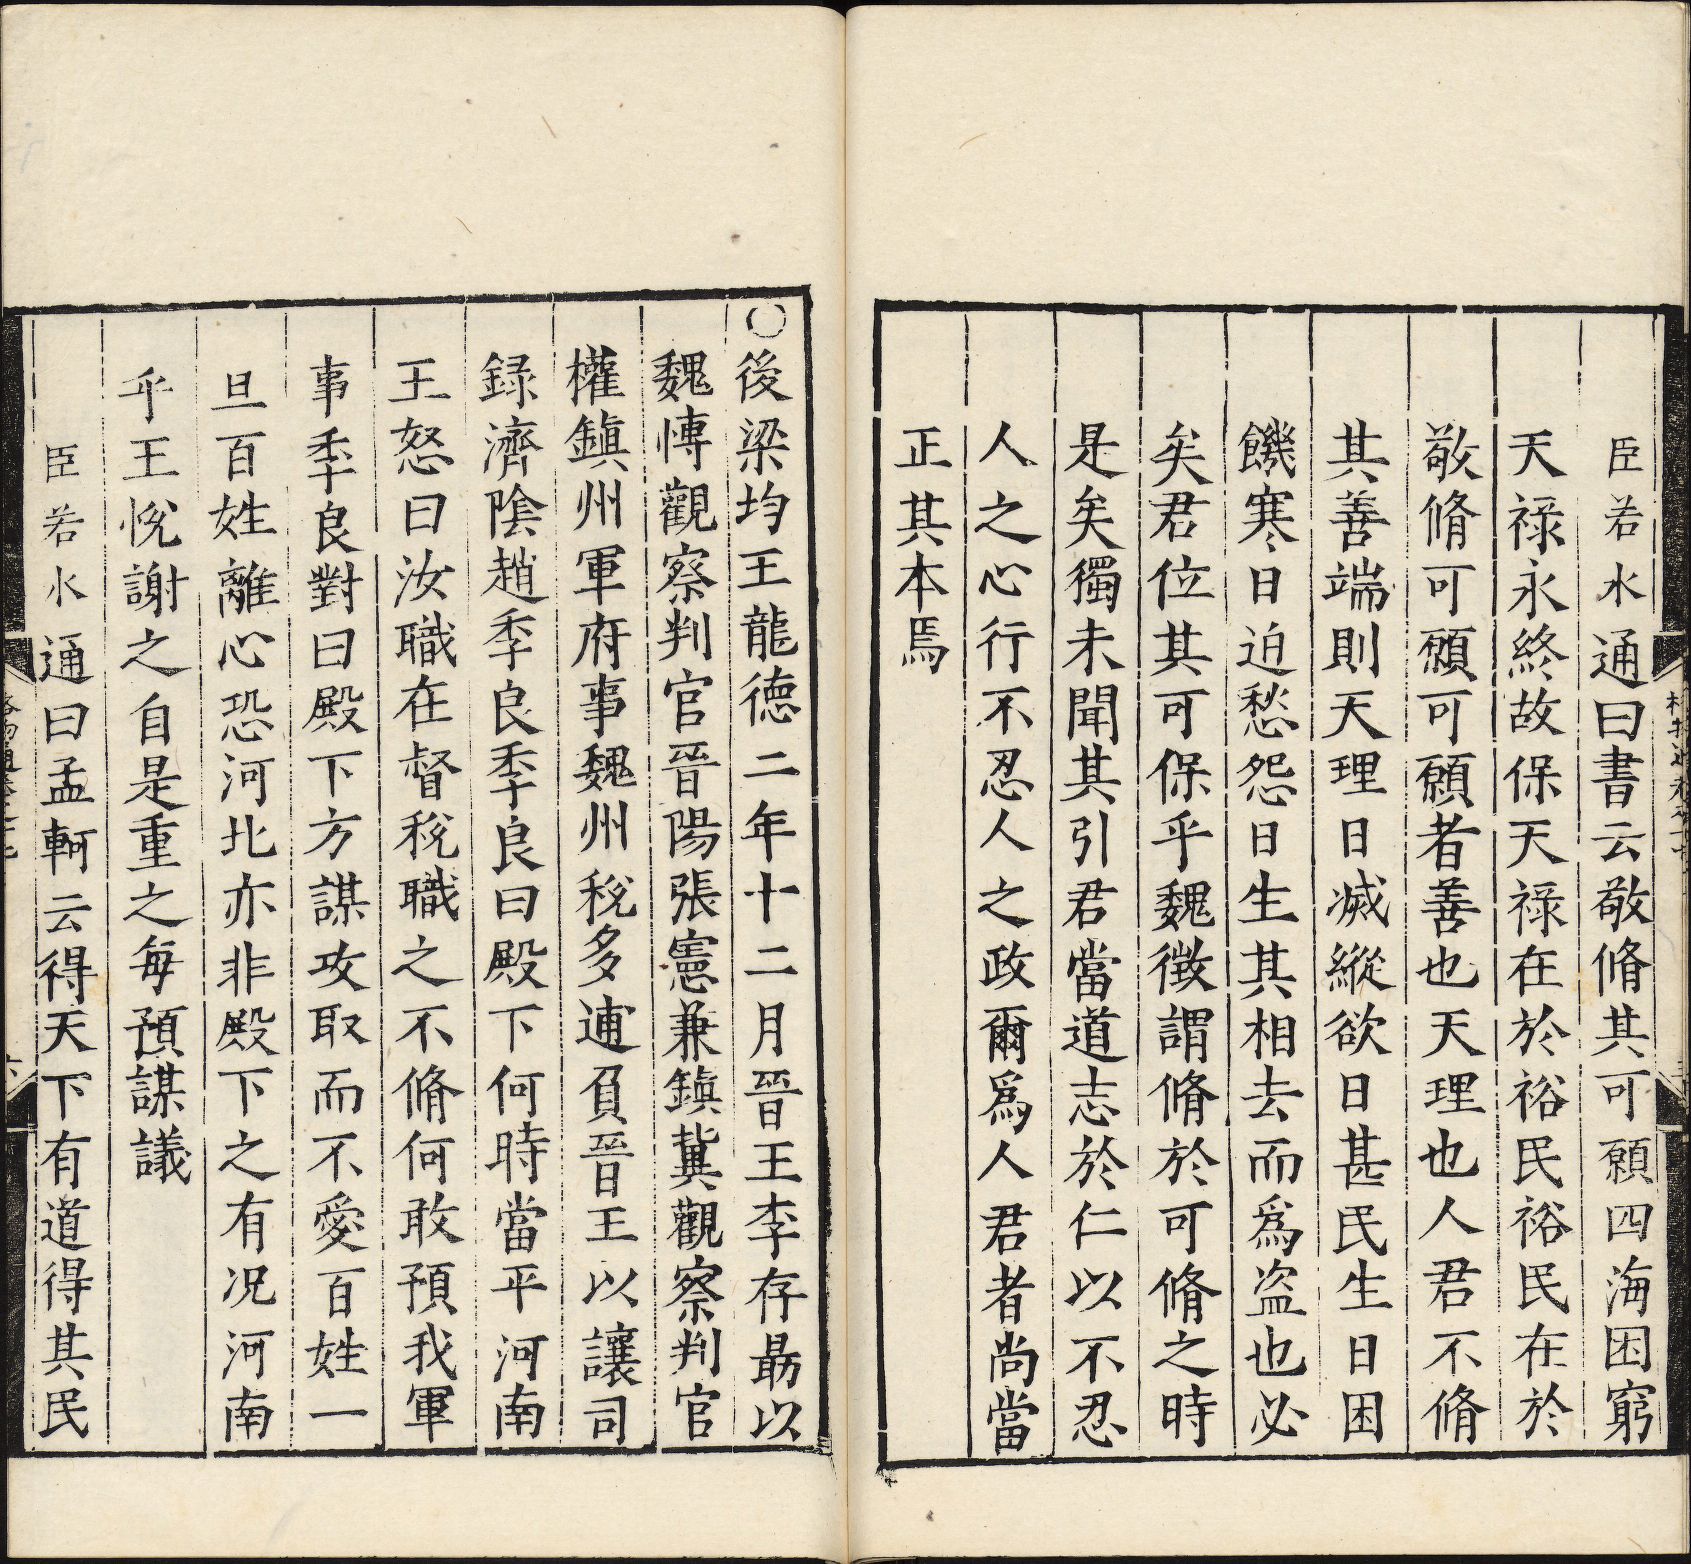 臣若水通曰書云敬脩其可願四海困窮
天祿永終故保天祿在於裕民裕民在於
敬脩可願可願者善也天理也人君不脩
其善端則天理日滅縱欲日甚民生日困
饑寒日迫愁怨日生其相去而爲盜也必
矣君位其可保乎魏徵謂脩於可脩之時
是矣獨未聞其引君當道志於仁以不忍
人之心行不忍人之政爾爲人君者尚當
正其本焉
○後梁均王龍德二年十二月晉王李存勗以
魏博觀察判官晉陽張憲兼鎮冀觀察判官
權鎮州軍府事魏州稅多逋負晉王以讓司
録濟陰趙季良季良曰殿下何時當平河南
王怒曰汝職在督稅職之不脩何敢預我軍
事季良對曰殿下方謀攻取而不愛百姓一
旦百姓離心恐河北亦非殿下之有况河南
乎王悅謝之自是重之每預謀議
臣若水通曰孟軻云得天下有道得其民